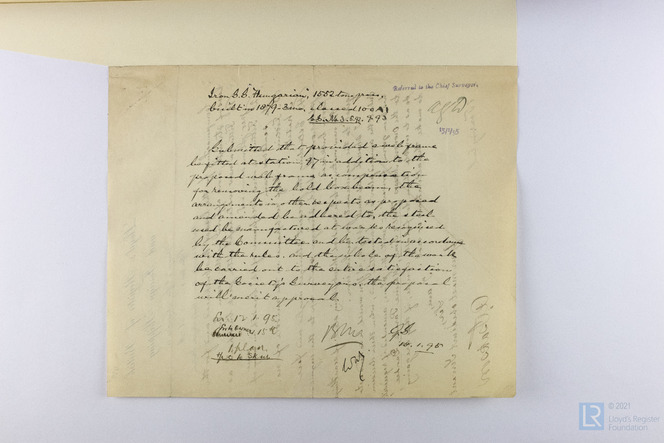 Iron S.S. "Hungarian", 1552 tons gross,
built in 1879-3mo, classed 100A1
Referred to the Chief Surveyor.
Submitted that provided a web frame
be fitted at station 87 in addition to the
proposed web frame as compensation
for removing the hold box beam, the
arrangements in other respects as proposed
and amended be adhered to, the steel
used be manufactured at works recognised
by the Committee and be tested in accordance
with the rules, and the whole of the work
be carried out to the entire satisfaction
of the Society's Surveyors, the proposal
will merit approval.
12.1.95
1 plan
16.1.95
LR
© 2021
Lloyd's Register
Foundation